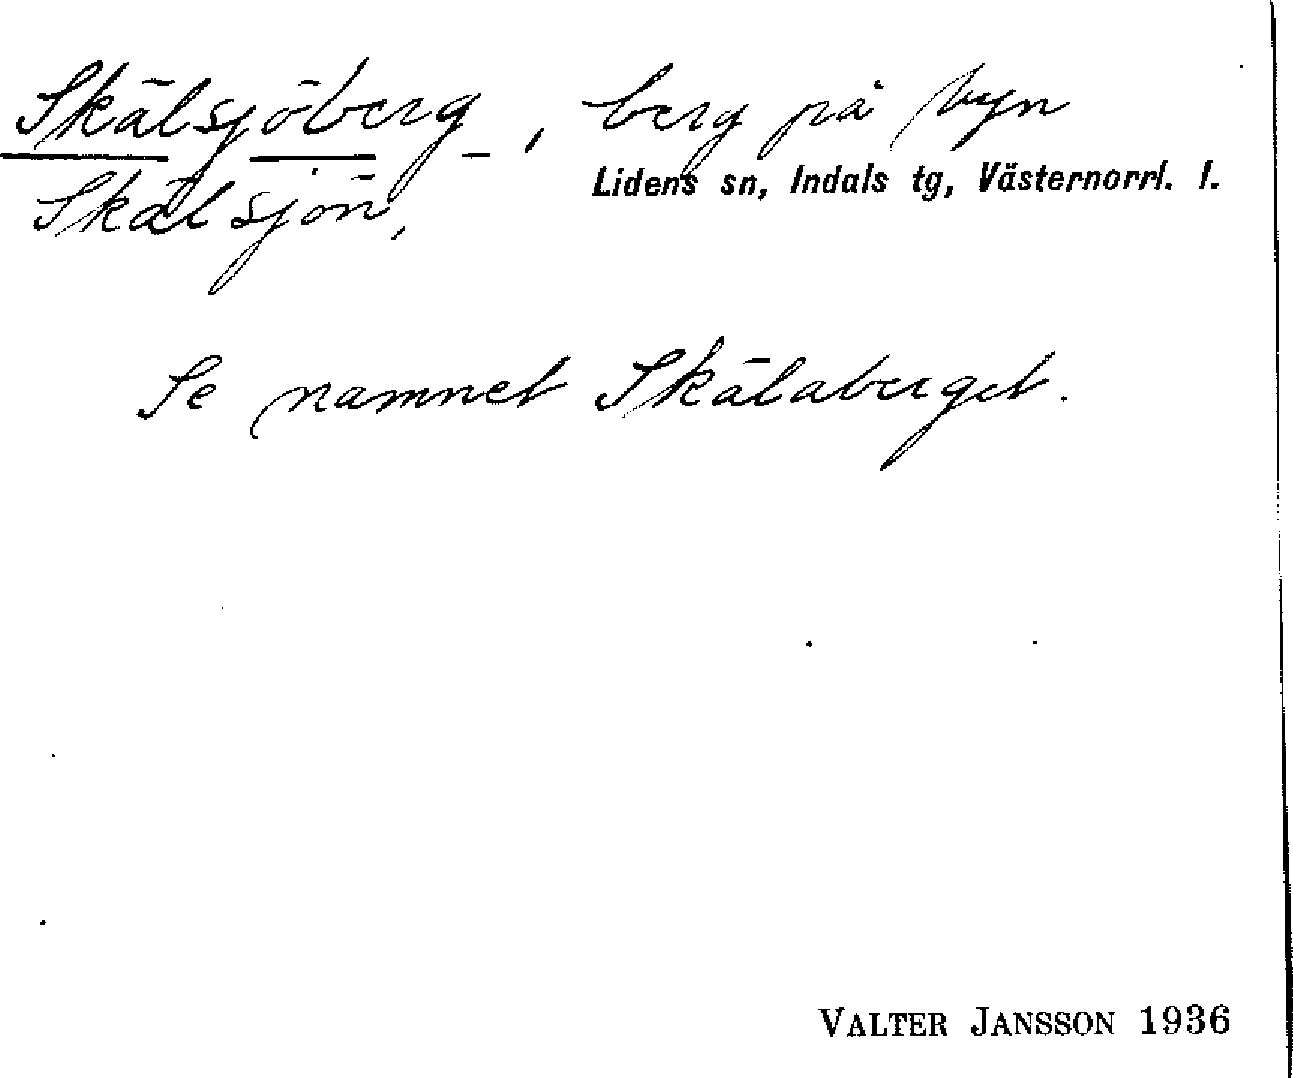 Skälsjöberg, berg på byn
Skälsjön,
Lidens sn, Indals tg, Västernorrl. l.
Se namnet Skälaberget.
VALTER JANSSON 1936